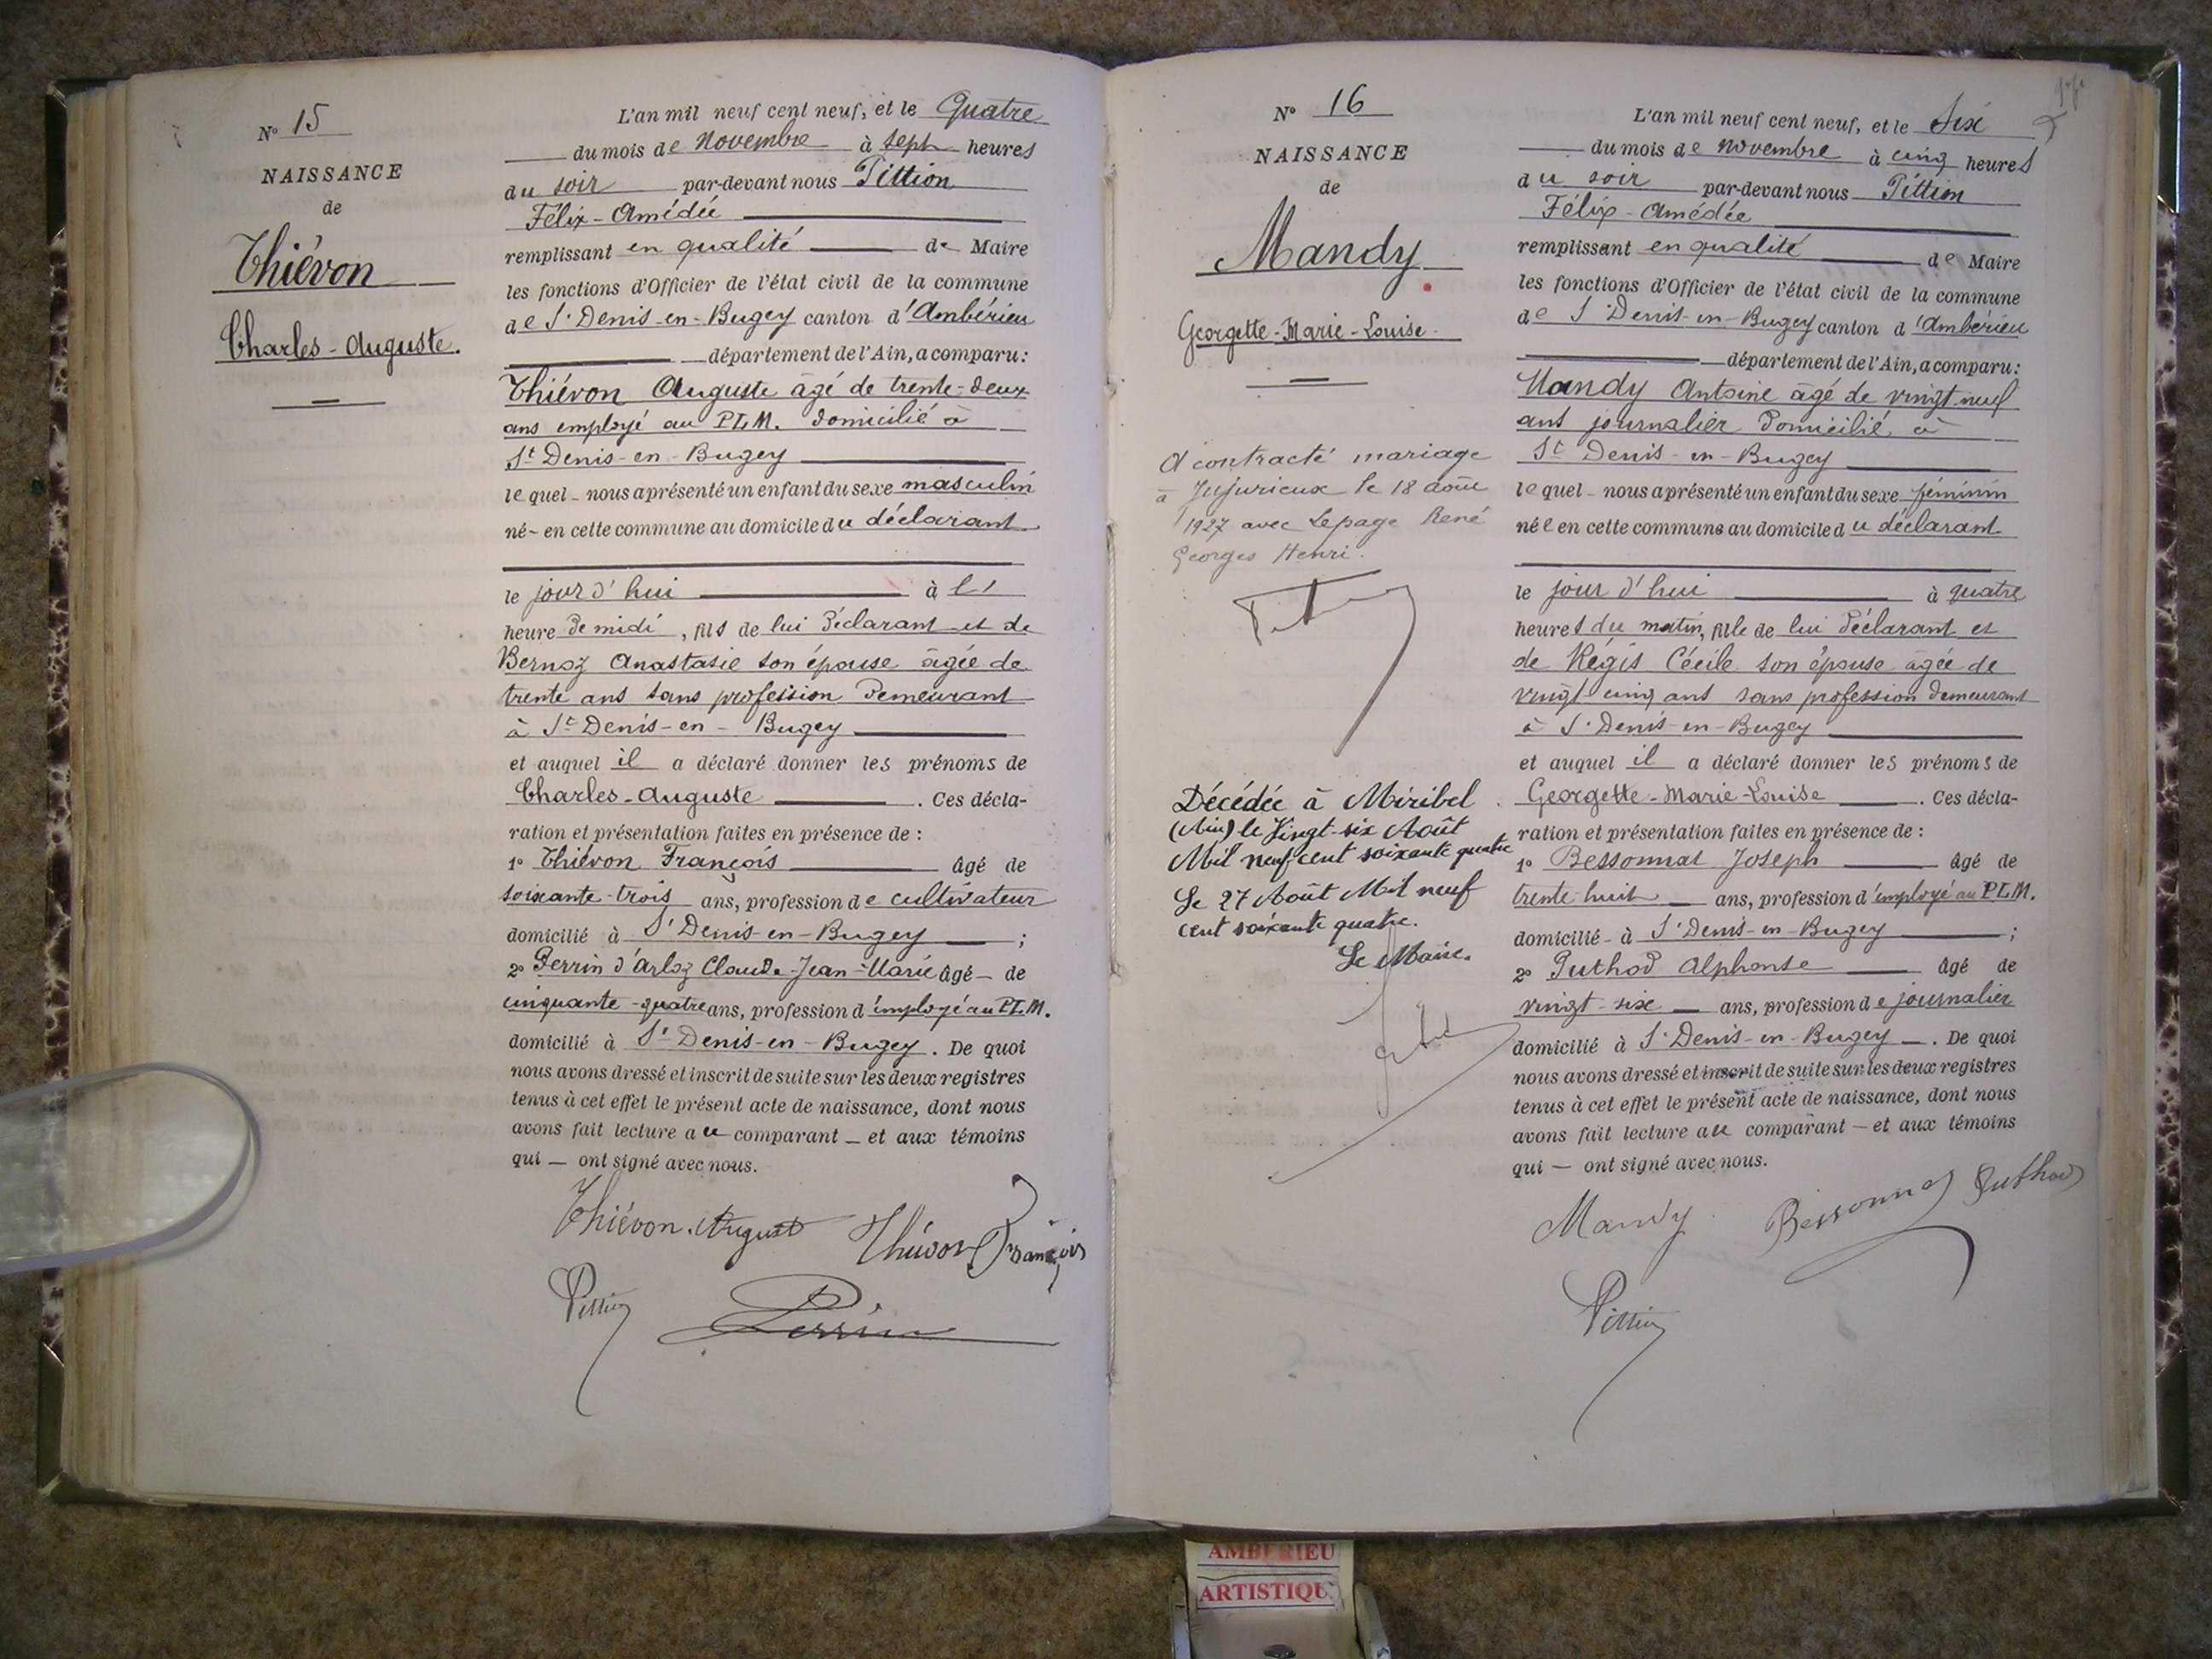 N° 15
NAISSANCE
de
Thiévon
Charles-Auguste.
L'an mil neuf cent neuf, et le Quatre
du mois de Novembre à sept heures
du soir par-devant nous Pittion
Félix-Amédée
remplissant en qualité de Maire
les fonctions d'Officier de l'état civil de la commune
de St Denis-en-Bugey canton d'Ambérieu
département de l'Ain, a comparu:
Thiévon Auguste âgé de trente-deux
ans employé au PLM. domicilié à
St Denis-en-Bugey
lequel nous a présenté un enfant du sexe masculin
né en cette commune au domicile du déclarant
le jour d'hui à
heure de midi, fils de lui déclarant et de
Bernoz Anastasie son épouse âgée de
trente ans sans profession demeurant
à St Denis-en-Bugey
et auquel il a déclaré donner les prénoms de
Charles-Auguste. Ces décla-
ration et présentation faites en présence de :
1° Thiévon François âgé de
soixante-trois ans, profession de cultivateur
domicilié à St Denis-en-Bugey ;
2° Perrin d'Arloz Claude-Jean-Marie âgé de
cinquante-quatre ans, profession d'employé au PLM.
domicilié à St Denis-en-Bugey. De quoi
nous avons dressé et inscrit de suite sur les deux registres
tenus à cet effet le présent acte de naissance, dont nous
avons fait lecture au comparant et aux témoins
qui ont signé avec nous.
Thiévon. August Thiévon François
Pittion Perrin
N° 16
NAISSANCE
de
Mandy
Georgette-Marie-Louise
A contracté mariage
à Jujurieux le 18 août
1927 avec Lepage René
Georges Henri.
Décédée à Miribel
(Ain) le Vingt-six Août
Mil neuf cent soixante quatre
Le 27 Août Mil neuf
cent soixante quatre.
Le Maire.
L'an mil neuf cent neuf, et le Six
du mois de Novembre à cinq heures
du soir par-devant nous Pittion
Félix-Amédée
remplissant en qualité de Maire
les fonctions d'Officier de l'état civil de la commune
de St Denis-en-Bugey canton d'Ambérieu
département de l'Ain, a comparu:
Mandy Antoine âgé de vingt-neuf
ans journalier domicilié à
St Denis-en-Bugey
lequel nous a présenté un enfant du sexe féminin
née en cette commune au domicile du déclarant
le jour d'hui à quatre
heures du matin, fille de lui déclarant et
de Régis Cécile son épouse âgée de
vingt-cinq ans sans profession demeurant
à St Denis-en-Bugey
et auquel il a déclaré donner les prénoms de
Georgette-Marie-Louise. Ces décla-
ration et présentation faites en présence de :
1° Bessonnat Joseph âgé de
trente-huit ans, profession d'employé au PLM.
domicilié à St Denis-en-Bugey ;
2° Puthod Alphonse âgé de
vingt-six ans, profession de journalier
domicilié à St Denis-en-Bugey. De quoi
nous avons dressé et inscrit de suite sur les deux registres
tenus à cet effet le présent acte de naissance, dont nous
avons fait lecture au comparant et aux témoins
qui ont signé avec nous.
Mandy Bessonnat Puthod
Pittion
AMBERIEU
ARTISTIQU